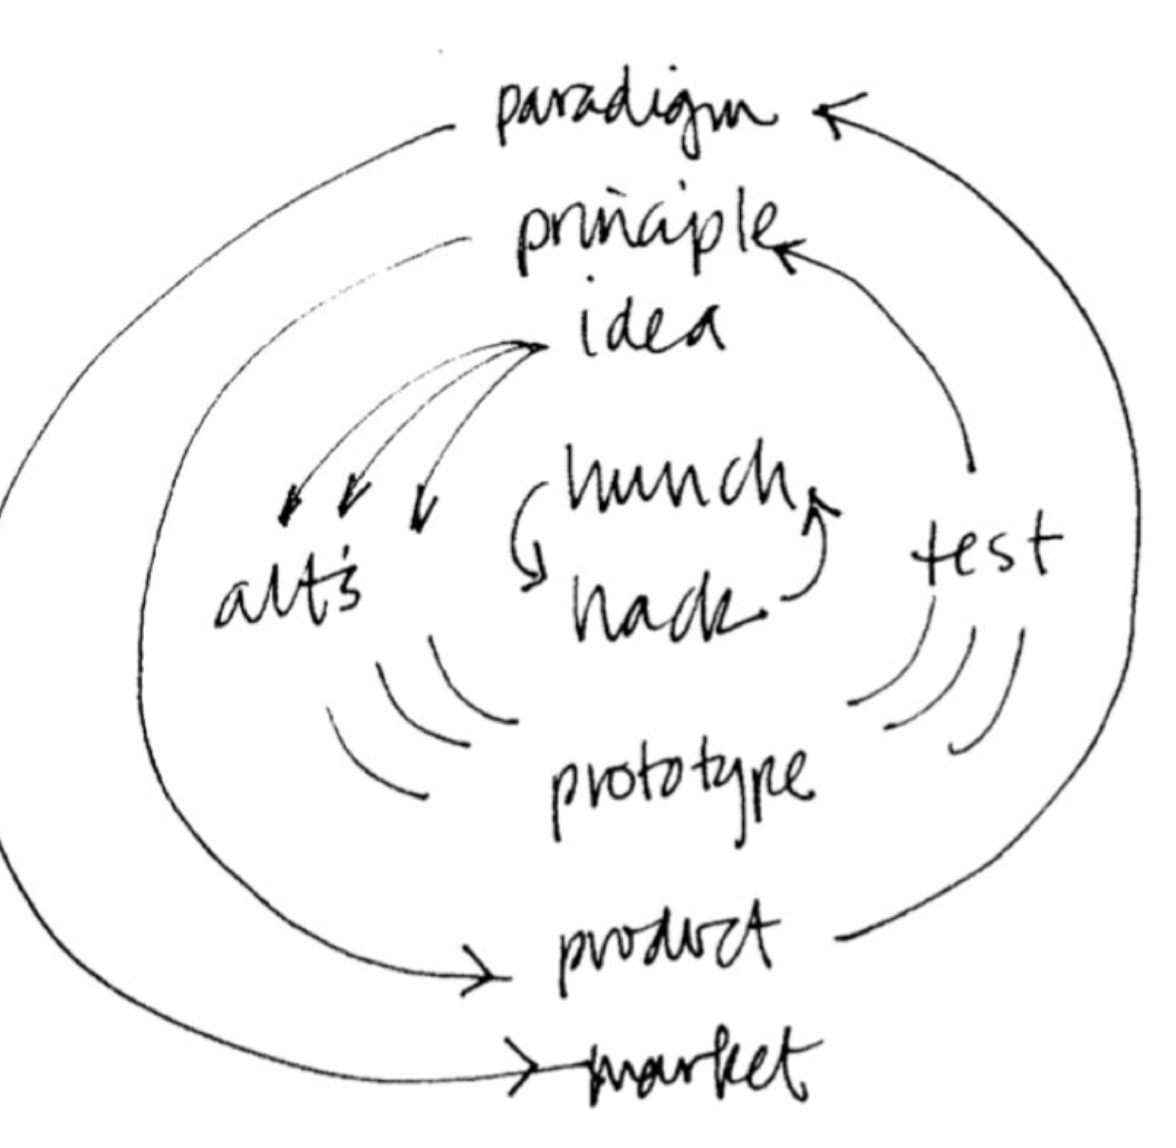 paradigm
principle
idea
hunch
alt's
test
hack
prototype
product
market